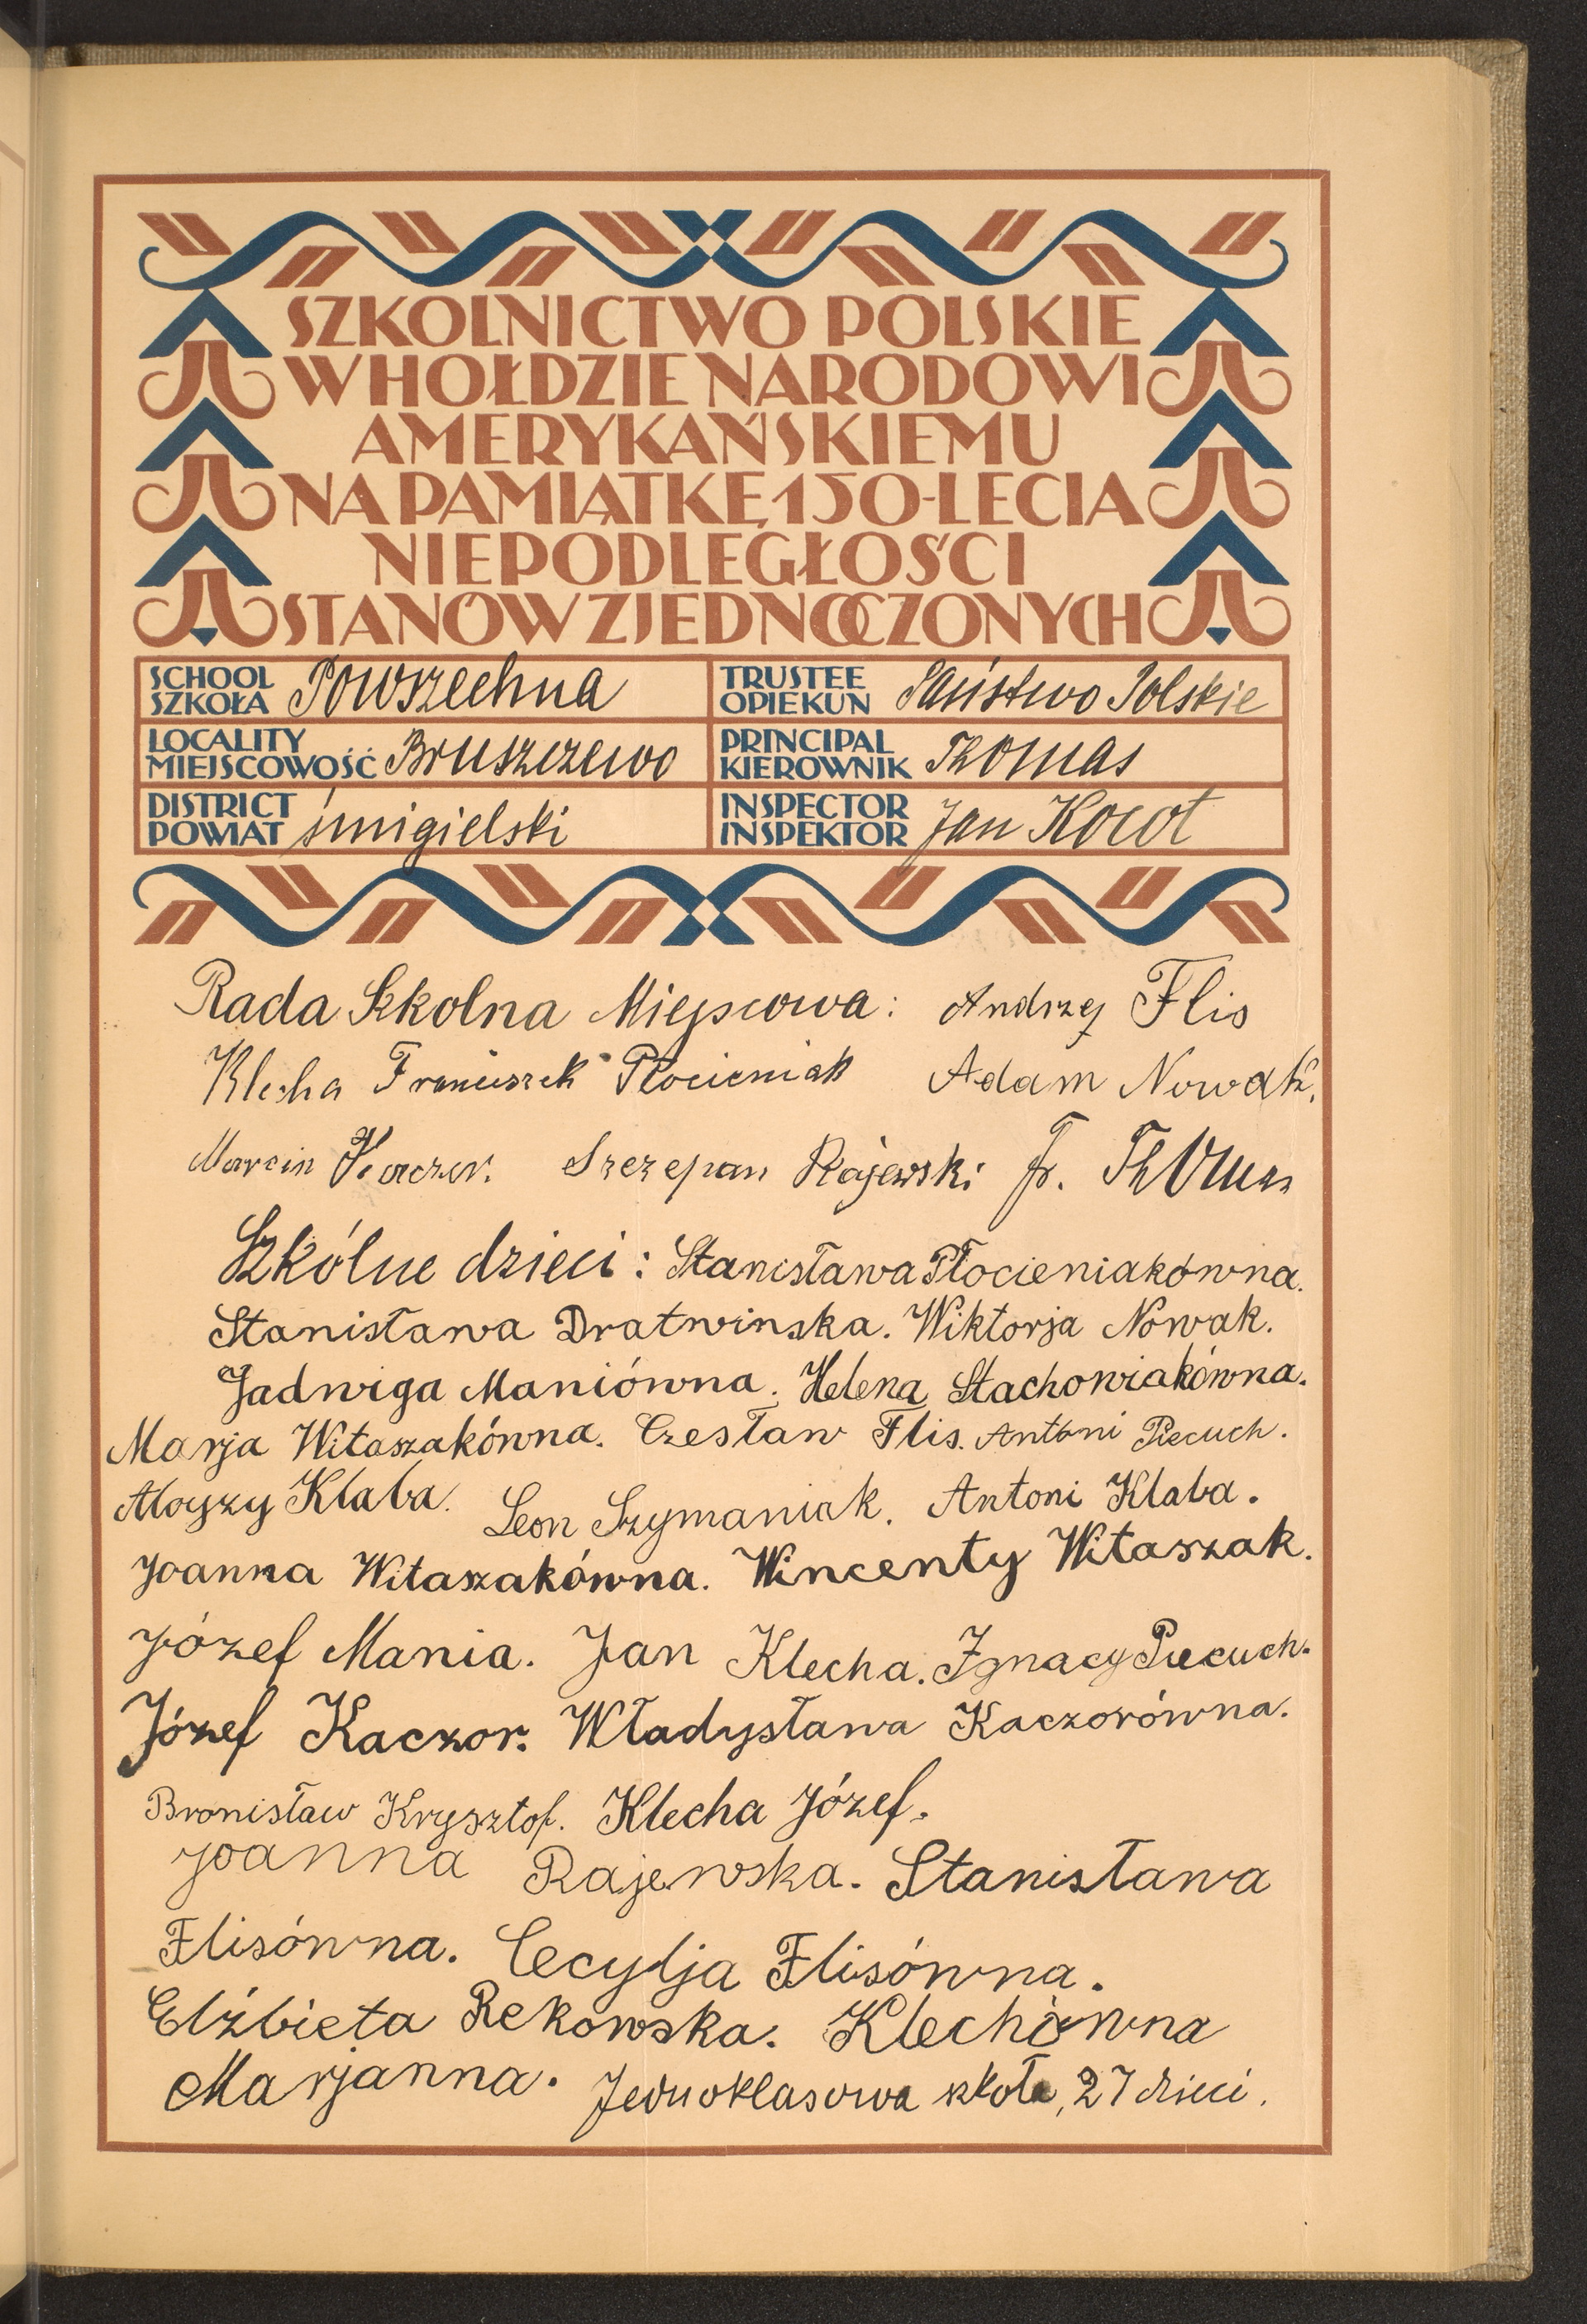 SZKOLNICTWO POLSKIE
W HOŁDZIE NARODOWI
AMERYKAŃSKIEMU
NA PAMIĄTKĘ 150-LECIA
NIEPODLEGŁOŚCI
STANÓW ZJEDNOCZONYCH
SCHOOL
SZKOŁA Powszechna
TRUSTEE
OPIEKUN Państwo Polskie
LOCALITY
MIEJSCOWOŚĆ Bruszczewo
PRINCIPAL
KIEROWNIK Thomas
DISTRICT
POWIAT śmigielski
INSPECTOR
INSPEKTOR Jan Kocot
Rada Szkolna Miejscowa: Andrzej Flis
Klecha Franciszek Płocieniak Adam Nowak.
Marcin Kaczor. Szczepan Rajewski Fr. Thomas
Szkólne dzieci: Stanisława Płocieniakówna.
Stanisława Dratwinska. Wiktorja Nowak.
Jadwiga Maniówna. Helena Stachowiakówna.
Marja Witaszakówna. Czesław Flis. Antoni Piecuch.
Aloyzy Klaba. Leon Szymaniak. Antoni Klaba.
Joanna Witaszakówna. Wincenty Witaszak.
Józef Mania. Jan Klecha. Ignacy Piecuch.
Józef Kaczor. Władysława Kaczorówna.
Bronisław Krysztof. Klecha Józef.
Joanna Rajewska. Stanisława
Flisówna. Cecylja Flisówna.
Elżbieta Rekowska. Klechówna
Marjanna. Jednoklasowa szkoła, 27 dzieci.